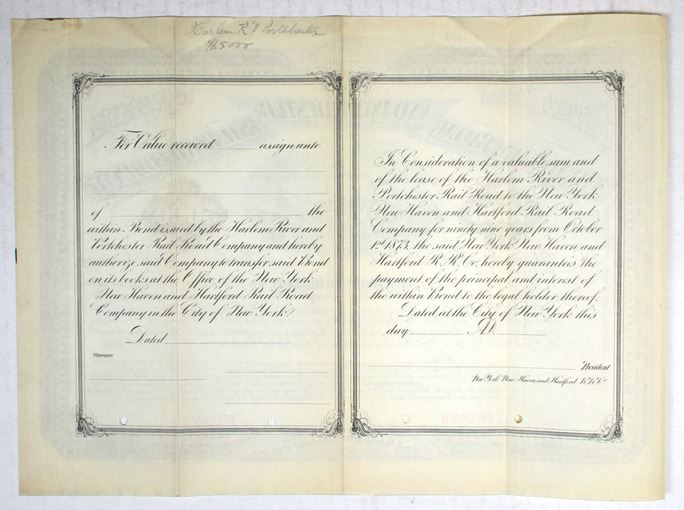 Harlem R & Portchester
$5000
For Value received assign unto
of the
within Bond issued by the Harlem River and
Portchester Rail Road Company and hereby
authorize said Company to transfer said Bond
on its books at the Office of the New York
New Haven and Hartford Rail Road
Company in the City of New York.
Dated
Witnesses
In Consideration of a valuable sum and
of the lease of the Harlem River and
Portchester Rail Road to the New York
New Haven and Hartford Rail Road
Company for ninety nine years from October
1st 1873, the said New York New Haven and
Hartford R. R. Co. hereby guarantees the
payment of the principal and interest of
the within Bond to the legal holder thereof.
Dated at the City of New York this
day A.D.
President
New York New Haven and Hartford R.R.Co.
SPECIMEN
SPECIMEN